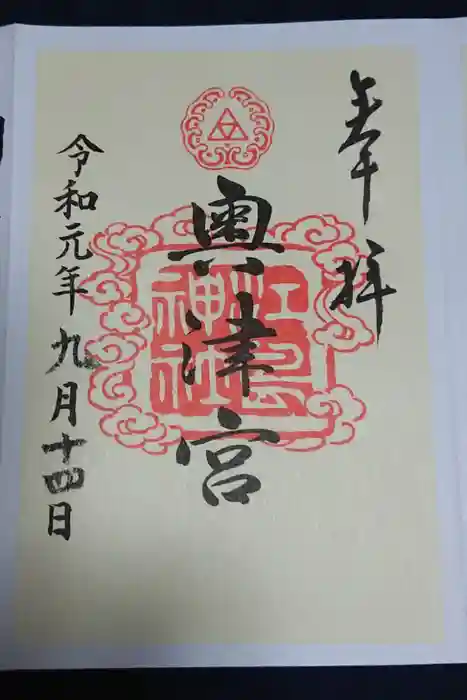 奉拝
奥津宮
江島
神社
令和元年九月十四日